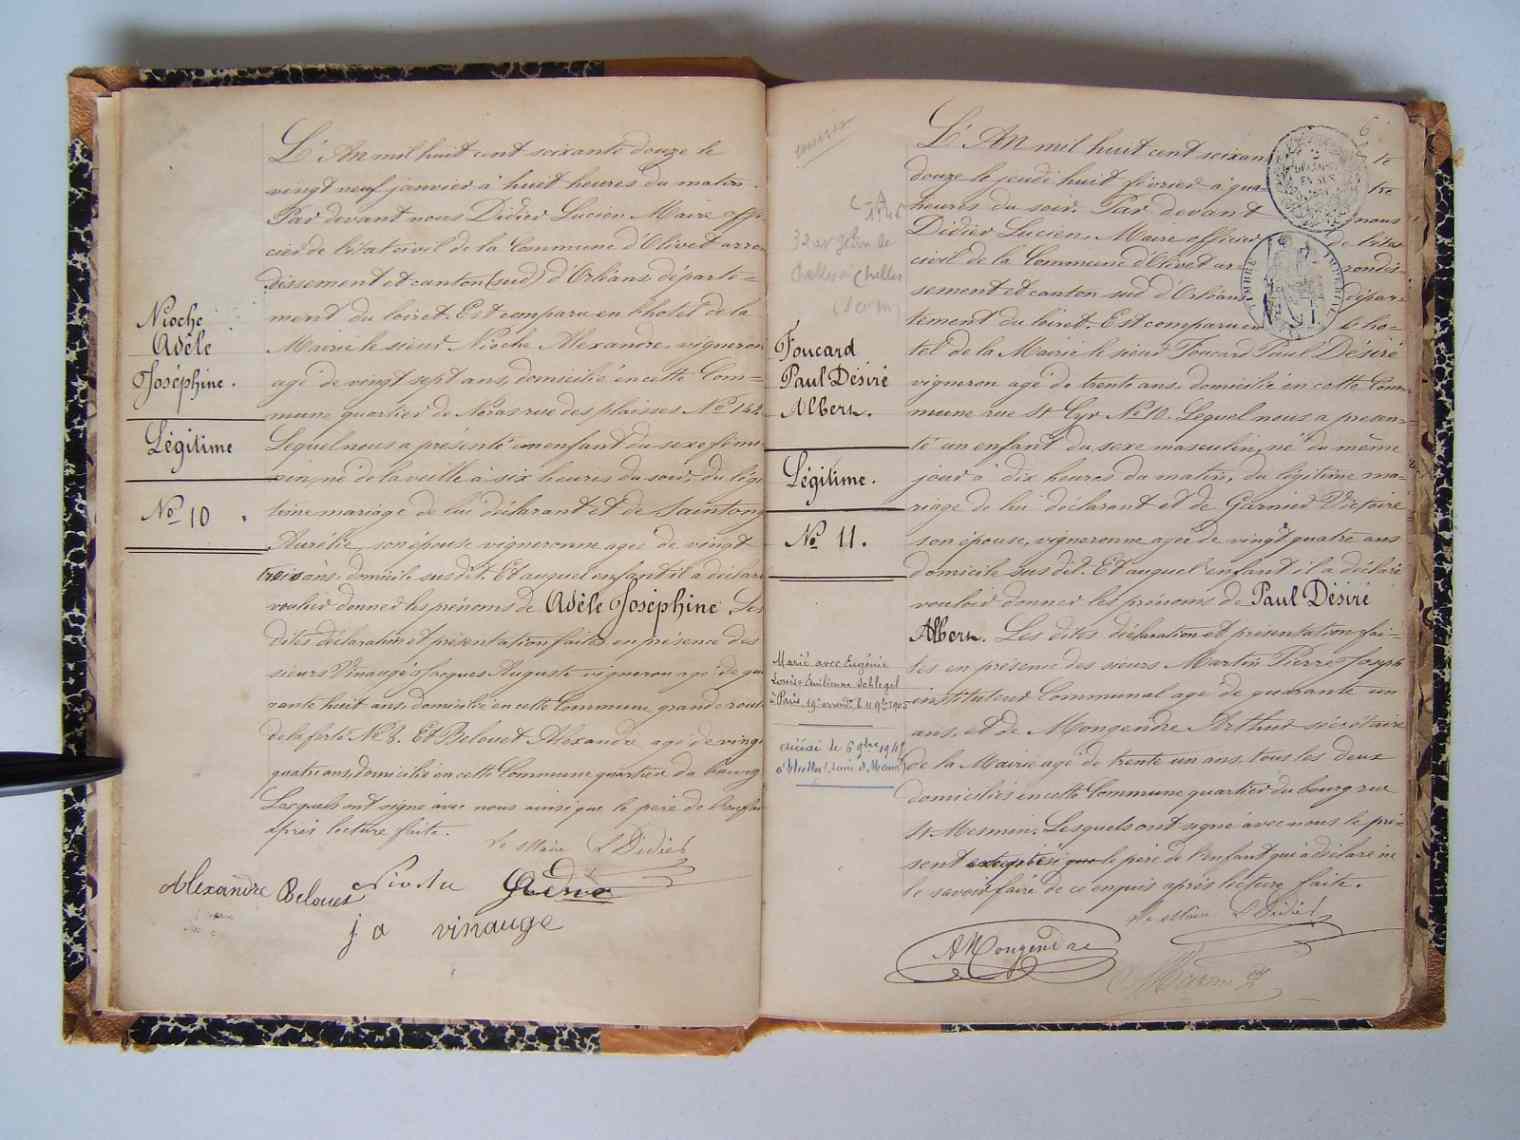 Nioche
Adèle
Joséphine.
Légitime
No 10
L'An mil huit cent soixante douze le
vingt neuf janvier à huit heures du matin.
Par devant nous Didier Lucien Maire offi-
cier de l'état civil de la Commune d'Olivet arron
dissement et canton (sud) d'Orléans départe=
ment du loiret. Est comparu en l'hotel de la
Mairie le sieur Nioche Alexandre, vigneron
agé de vingt sept ans, domicilié en cette Com=
mune quartier de Noras rue des plaisses No
Lequel nous a présenté un enfant du sexe fémi
nin, né de la veille à six heures du soir, du légi
time mariage de lui déclarant et de Saintong
Aurélie, son épouse vigneronne agée de vingt
trois ans, domicile susdit. Et auquel enfant il a déclaré
vouloir donner les prénoms de Adèle Joséphine. Les
dites déclaration et présentation faites en présence des
sieurs Vinauge Jacques Auguste vigneron agé de qua
rante huit ans, domicilié en cette Commune grande route
de la ferté No 8. Et Belouet Alexandre agé de vingt
quatre ans, domicilié en cette Commune quartier du bourg
Lesquels ont signé avec nous ainsi que le père de l'enfant
après lecture faite.
Le Maire L Didier
Alexandre Belouet Nioche
j a vinauge
6
Foucard
Paul Désiré
Albert.
Légitime.
No 11.
Marié avec Eugénie
Louise Emilienne Schlegel
à Paris 19e arrondt le 11 9bre 1905
décédé le 6 9bre 1945
L'An mil huit cent soixante
douze le jeudi huit février à quatre
heures du soir. Par devant nous
Didier Lucien Maire officier de l'état
civil de la Commune d'Olivet arrondis-
sement et canton sud d'Orléans dépar-
tement du loiret. Est comparu en l'ho-
tel de la Mairie le sieur Foucard Paul Désiré
vigneron agé de trente ans, domicilié en cette Com-
mune rue St Cyr No 10. Lequel nous a présen-
té un enfant du sexe masculin, né du même
jour à dix heures du matin, du légitime ma-
riage de lui déclarant et de Garnier Victoire
son épouse, vigneronne agée de vingt quatre ans
domicile sus dit. Et auquel enfant il a déclaré
vouloir donner les prénoms de Paul Désiré
Albert. Les dites déclaration et présentation fai-
tes en présence des sieurs Martin Pierre Joseph
instituteur Communal agé de quarante un
ans, et de Mongendre Arthur sécrétaire
de la Mairie agé de trente un ans, tous les deux
domiciliés en cette Commune quartier du bourg rue
St Mesmin. Lesquels ont signé avec nous le pré-
sent le père de l'enfant qui a déclaré ne
le savoir faire de ce enquis après lecture faite.
Le Maire L Didier
AMongendre